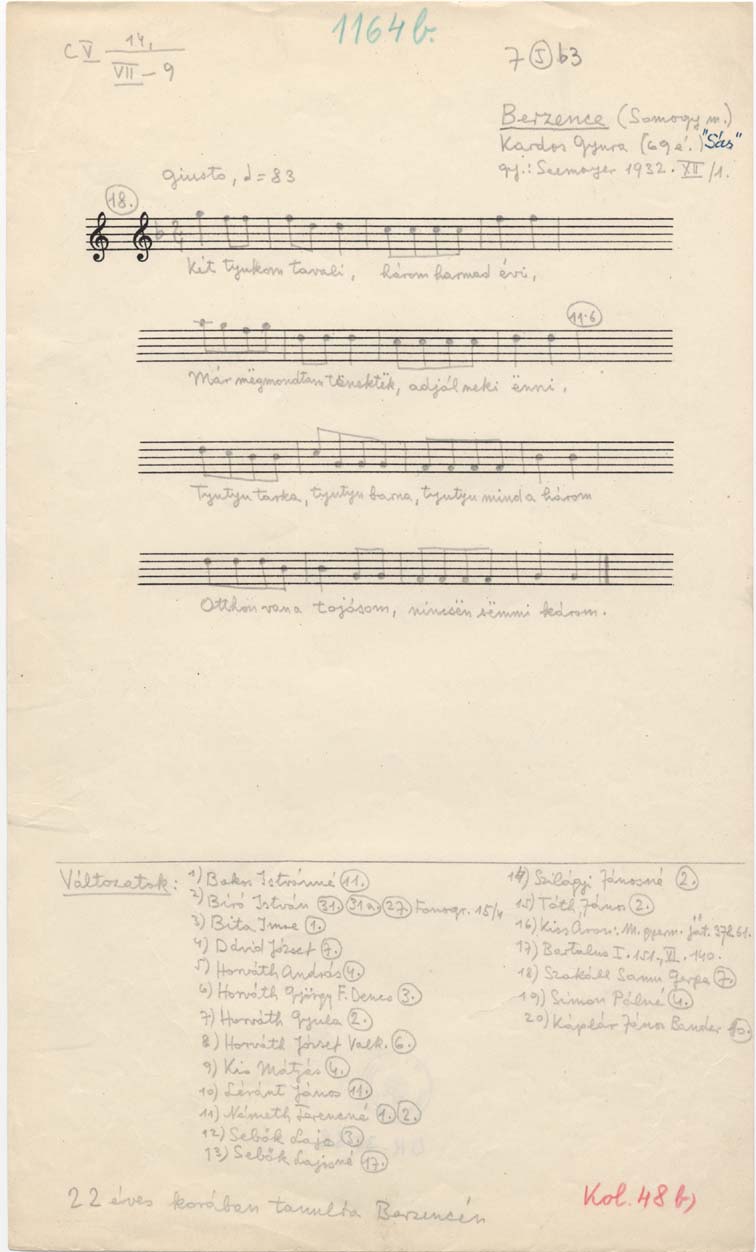 1164 b.
C V 14, VII - 9
7 (5) b3
Berzence (Somogy m.)
Kardos Gyura (69 é.) "Sás"
gyj.: Seemayer 1932. XII/1.
giusto, ♩= 83
18.
Két tyukom tavali, három harmad évi,
11·6
Már mëgmondtam tënektëk, adjál neki ënni,
Tyutyu tarka, tyutyu barna, tyutyu mind a három
Otthon van a tojásom, nincsën sëmmi károm.
Változatok:
1) Bakos Istvánné (11.)
2) Biró István (31.) (31a.) (27.) Fonogr. 15/4
3) Bita Imre (1.)
4) Dávid József (7.)
5) Horváth András (4.)
6) Horváth György F. Dencs (3.)
7) Horváth Gyula (2.)
8) Horváth József Valk. (6.)
9) Kis Mátjás (4.)
10) Léránt János (11.)
11) Németh Ferencné (1.) (2.)
12) Sebők Laja (3.)
13) Sebők Lajosné (17.)
14) Szilágyi Jánosné (2.)
15) Tóth János (2.)
16) Kiss Áron: M. gyerm. ját.
17) Bartalus I. 151, VI. 140.
18) Szakáll Samu Gerga (7.)
19) Simon Pálné (4.)
20) Káplár János Bander
22 éves korában tanulta Berzencén
Kol. 48 b)